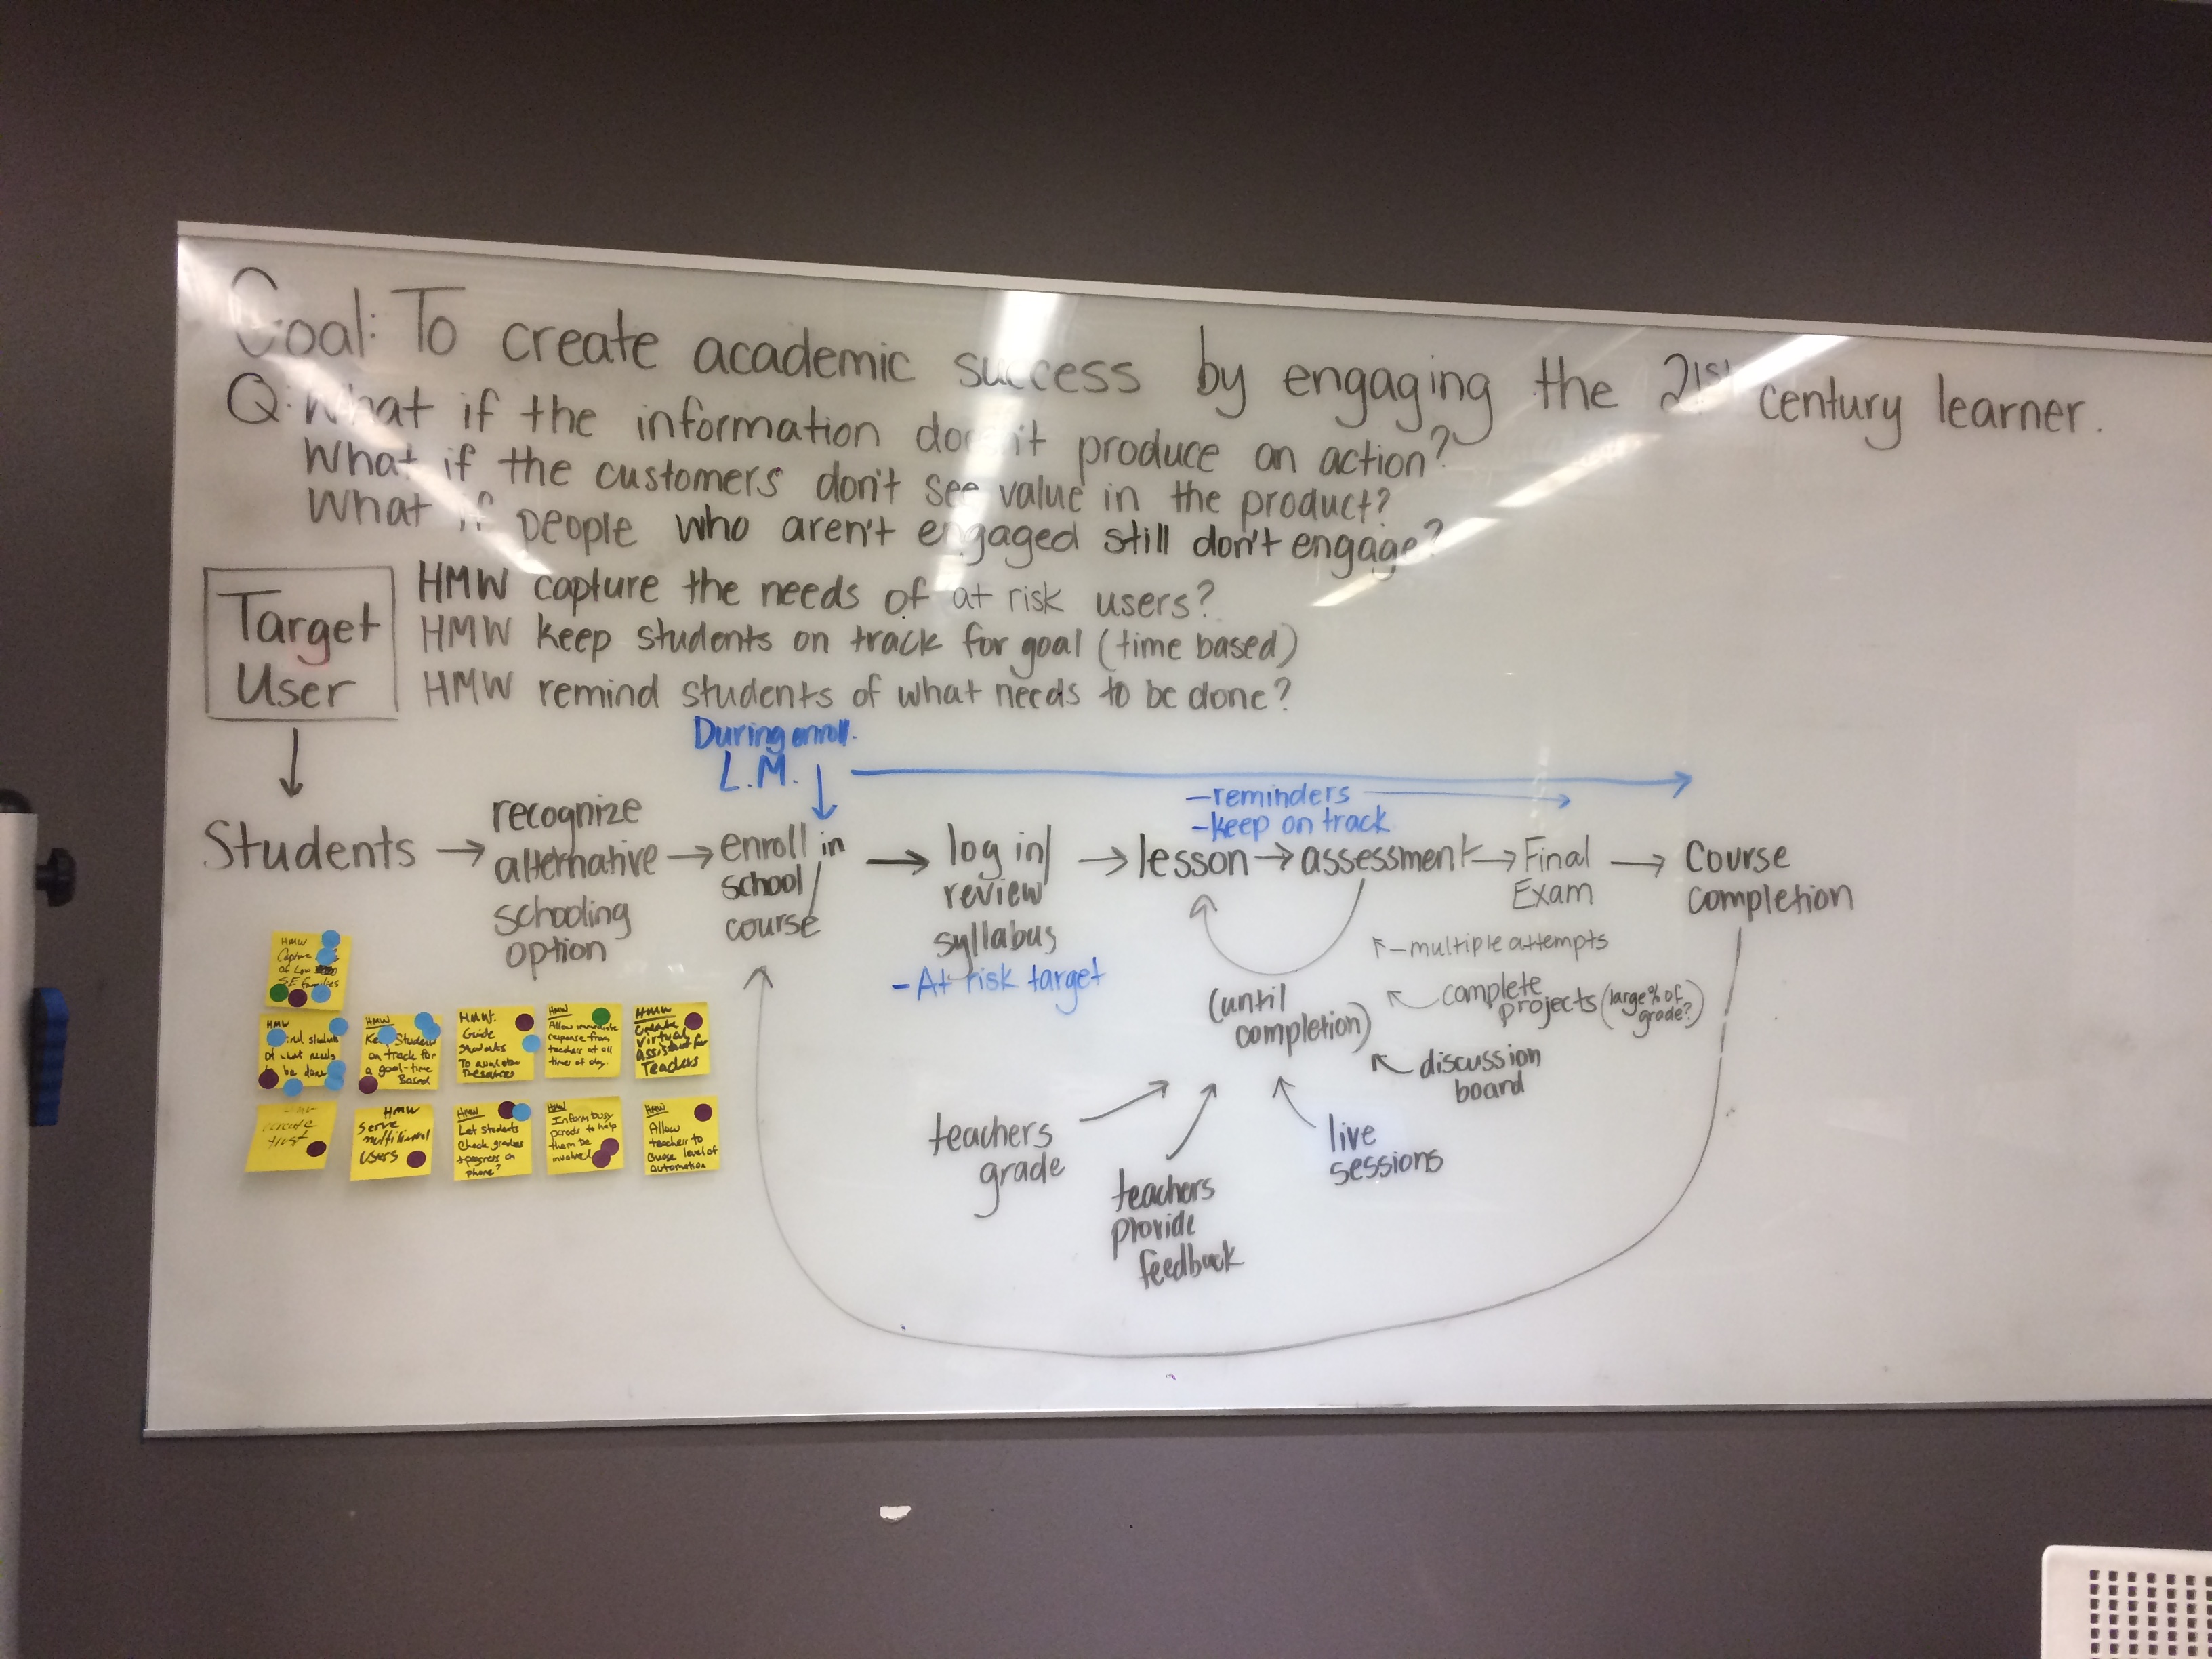 Goal: To create academic success by engaging the 21st century learner.
Q: What if the information doesn't produce an action?
What if the customers don't see value in the product?
What if people who aren't engaged still don't engage?
Target
User
HMW capture the needs of at risk users?
HMW keep students on track for goal (time based)
HMW remind students of what needs to be done?
During enroll.
L.M.
-reminders
-keep on track
Students
recognize
alternative
schooling
option
enroll in
school/
course
log in/
review
syllabus
-At risk target
lesson
assessment
Final
Exam
Course
completion
(until
completion)
-multiple attempts
complete
projects (large % of
grade?)
discussion
board
live
sessions
teachers
provide
feedback
teachers
grade
HMW
Capture
of Low
SE families
HMW
students
of what needs
to be done
HMW
Keep Student
on track for
a goal-time
Based
HMW.
Guide
Students
To available
Resources
HMW
Allow immediate
response from
teachers at all
times of day.
HMW
Create
Virtual
Assist for
Teachers
create
trust
HMW
Serve
multilingual
users
HMW
Let students
Check grades
+ progress on
phone?
HMW
Inform busy
parents to help
them be
involved
HMW
Allow
teachers to
Choose level of
automation